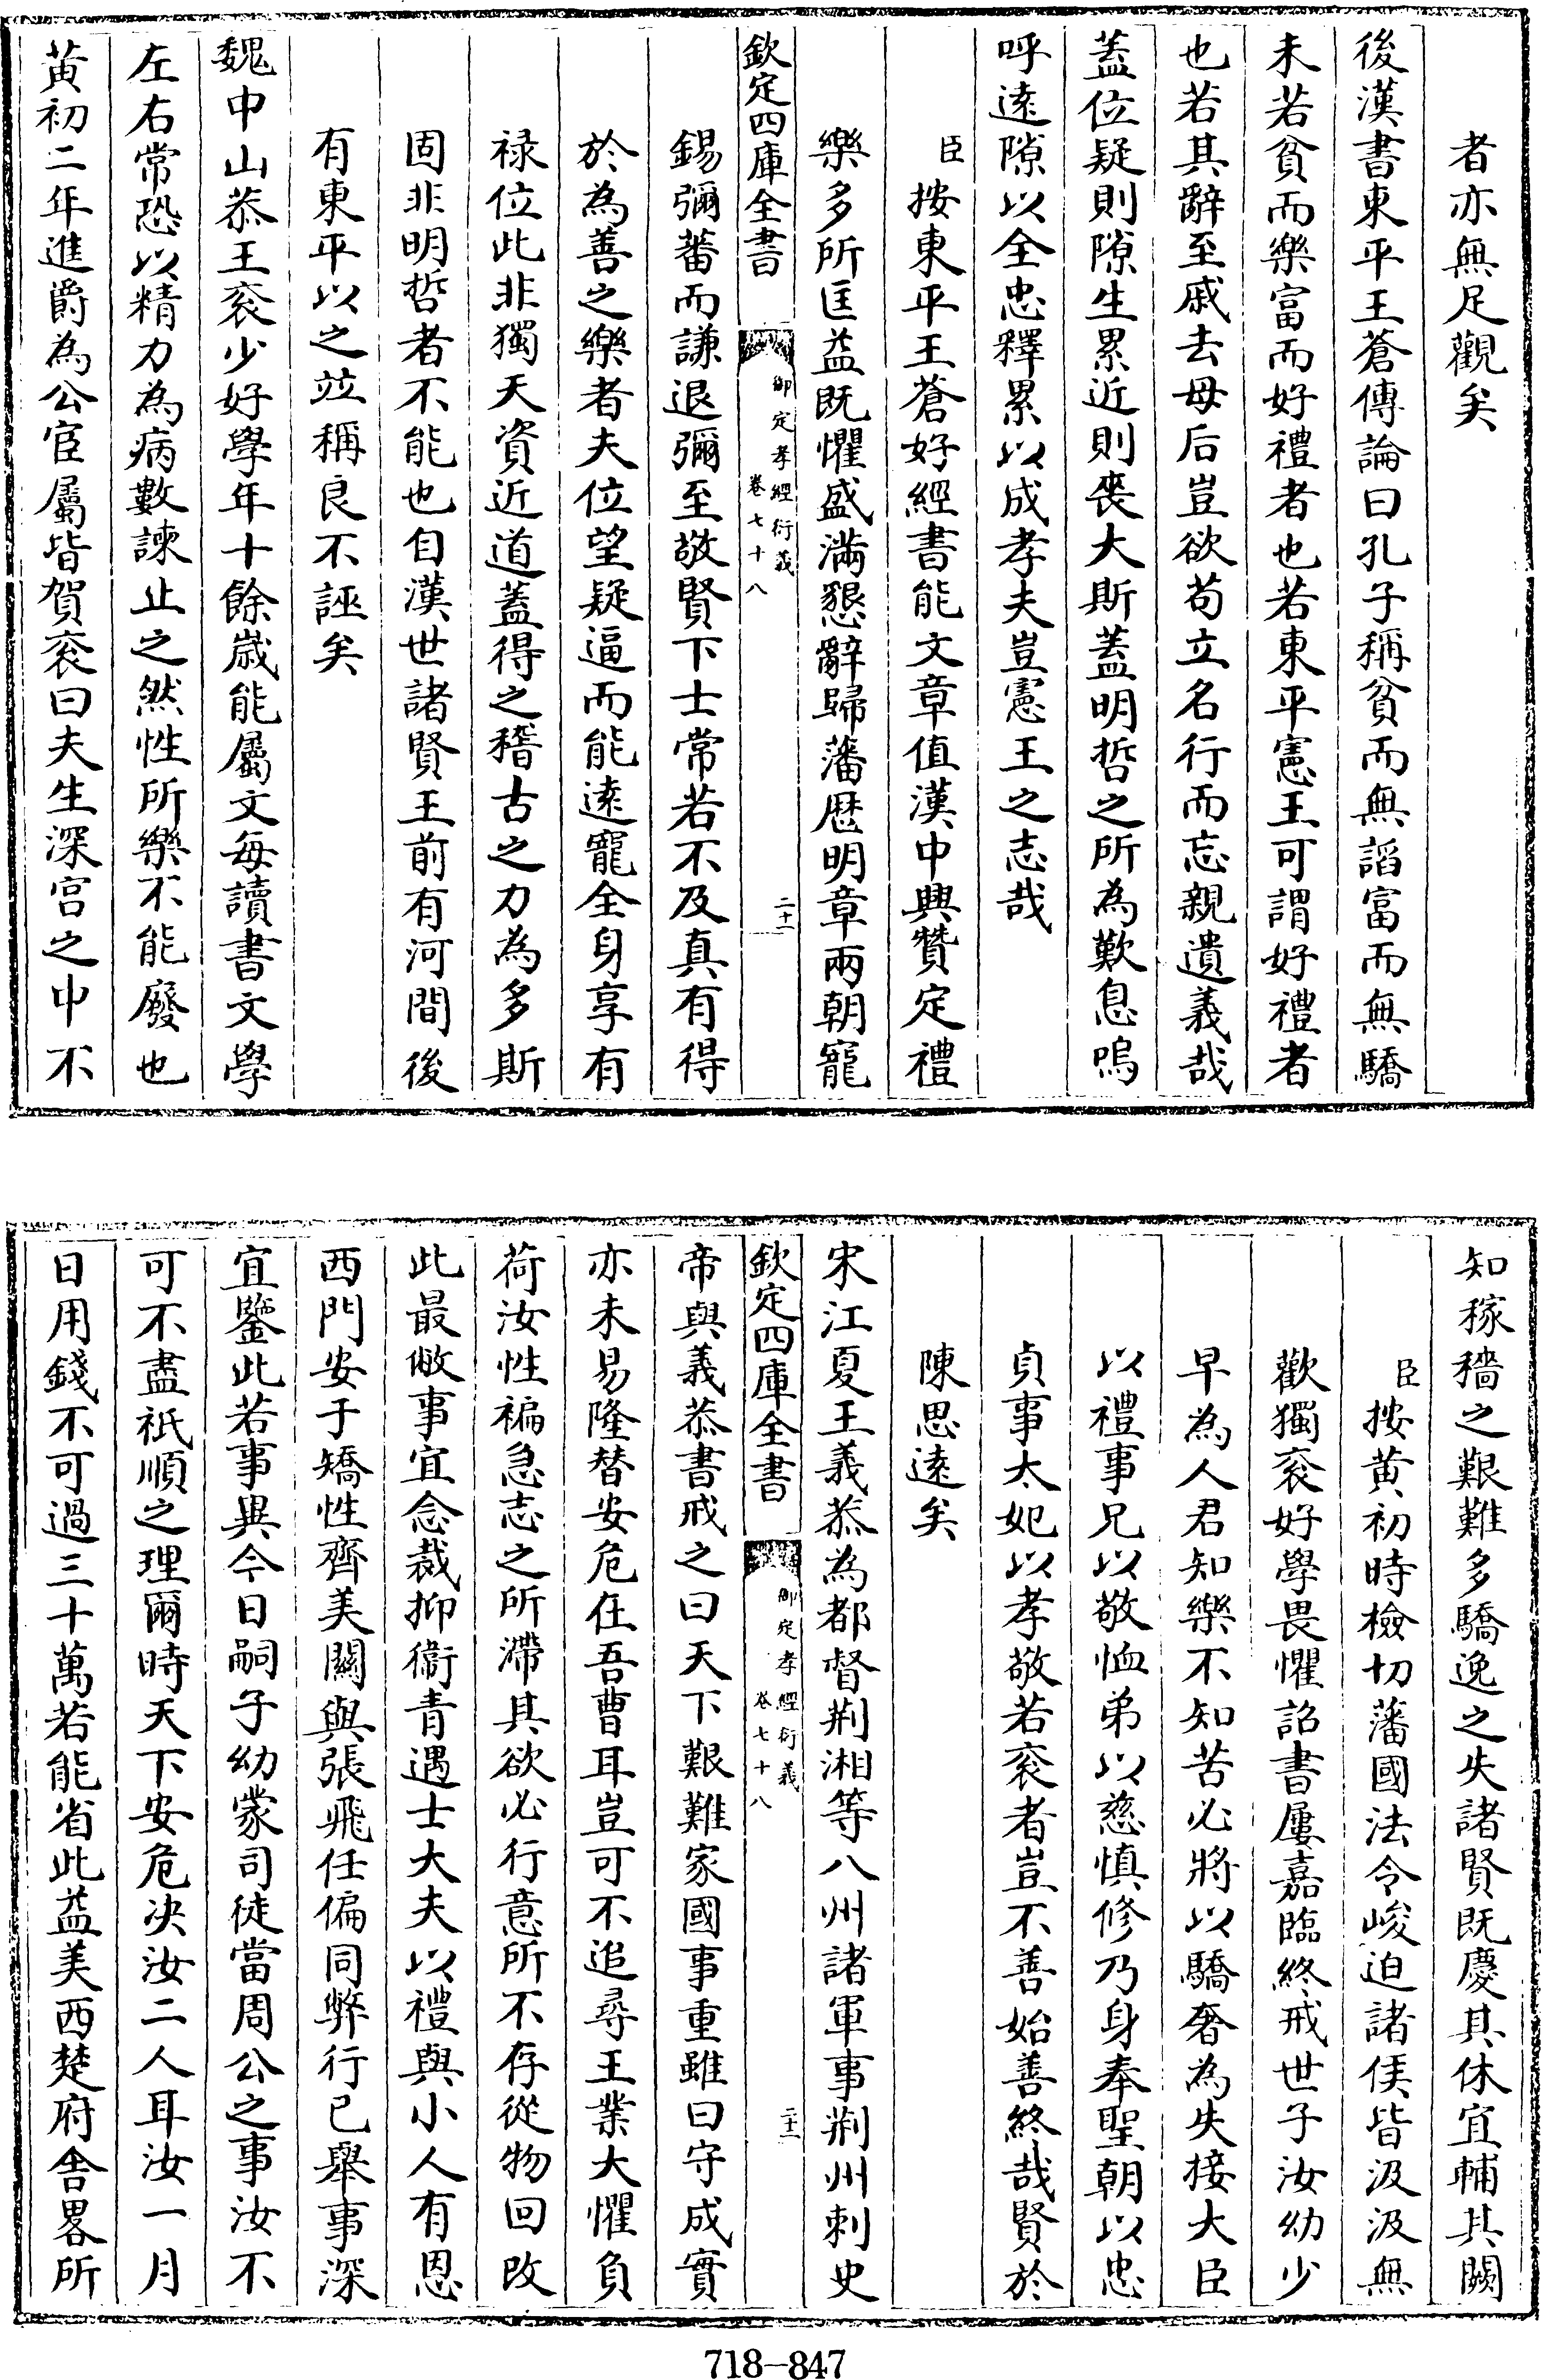 者亦無足觀矣
後漢書東平王蒼傳論曰孔子稱貧而無謟富而無驕
未若貧而樂富而好禮者也若東平憲王可謂好禮者
也若其辭至戚去母后豈欲苟立名行而忘親遺義哉
蓋位疑則隙生累近則喪大斯蓋明哲之所為歎息嗚
呼逺隙以全忠釋累以成孝夫豈憲王之志哉
臣按東平王蒼好經書能文章值漢中興贊定禮
樂多所匡益既懼盛滿懇辭歸藩歴明章兩朝寵
欽定四庫全書 御定孝經衍義 卷七十八 二十一
錫彌蕃而謙退彌至敬賢下士常若不及真有得
於為善之樂者夫位望疑逼而能逺寵全身享有
祿位此非獨天資近道蓋得之稽古之力為多斯
固非明哲者不能也自漢世諸賢王前有河間後
有東平以之竝稱良不誣矣
魏中山恭王衮少好學年十餘歲能屬文每讀書文學
左右常恐以精力為病數諫止之然性所樂不能廢也
黃初二年進爵為公官屬皆賀衮曰夫生深宫之中不
知稼穡之艱難多驕逸之失諸賢既慶其休宜輔其闕
臣按黃初時檢切藩國法令峻迫諸侯皆汲汲無
歡獨衮好學畏懼詔書屢嘉臨終戒世子汝幼少
早為人君知樂不知苦必將以驕奢為失接大臣
以禮事兄以敬恤弟以慈慎修乃身奉聖朝以忠
貞事太妃以孝敬若衮者豈不善始善終哉賢於
陳思逺矣
宋江夏王義恭為都督荆湘等八州諸軍事荆州刺史
欽定四庫全書 御定孝經衍義 卷七十八 二十二
帝與義恭書戒之曰天下艱難家國事重雖曰守成實
亦未易隆替安危在吾曹耳豈可不追尋王業大懼負
荷汝性褊急志之所滯其欲必行意所不存從物回改
此最敝事宜念裁抑衞青遇士大夫以禮與小人有恩
西門安于矯性齊美關與張飛任偏同弊行已舉事深
宜鑒此若事異今日嗣子幼蒙司徒當周公之事汝不
可不盡祇順之理爾時天下安危决汝二人耳汝一月
日用錢不可過三十萬若能省此益美西楚府舍畧所
718—847